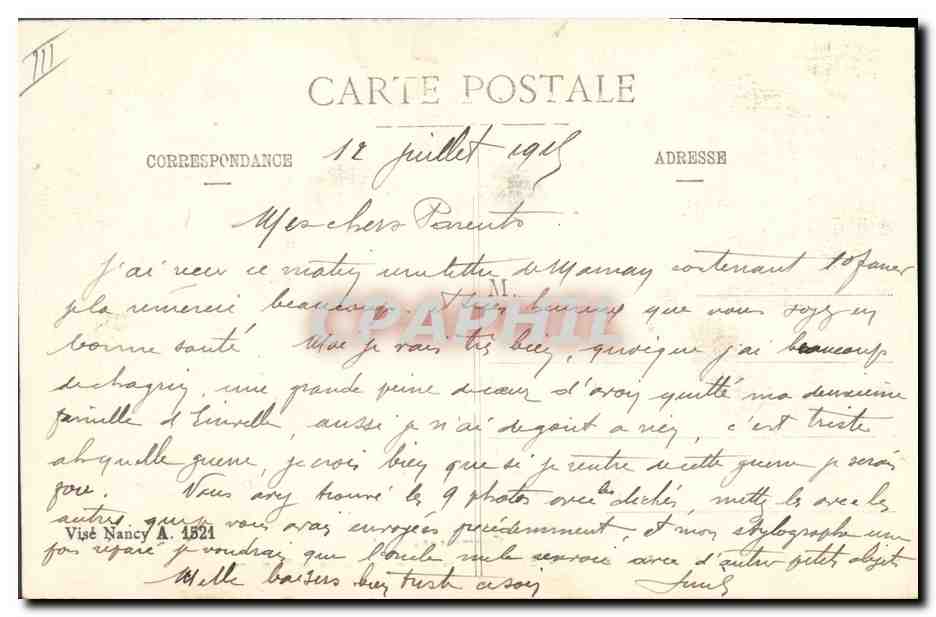 III
CARTE POSTALE
CORRESPONDANCE 12 juillet 1915 ADRESSE
Mes chers Parents
J'ai reçu ce matin une lettre de Maman contenant 10 francs
je la remercie beaucoup. Suis heureux que vous soyez en
M.
CPAPHIL
bonne santé. Moi je vais très bien, quoique j'ai beaucoup
de chagrin, une grande peine de cœur d'avoir quitté ma deuxième
famille d'Einville, aussi je n'ai de gout a rien, c'est triste
ah quelle guerre, je crois bien que si je rentre de cette guerre je serais
fou. Vous avez trouvé les 9 photos avec les clichés, mettez les avec les
autres que je vous avais envoyées précédemment, et mon stylographe une
Visé Nancy A. 1521
fois réparé je voudrais que l'oncle me le renvoie avec d'autres petits objets
Mille baisers bien triste ce soir